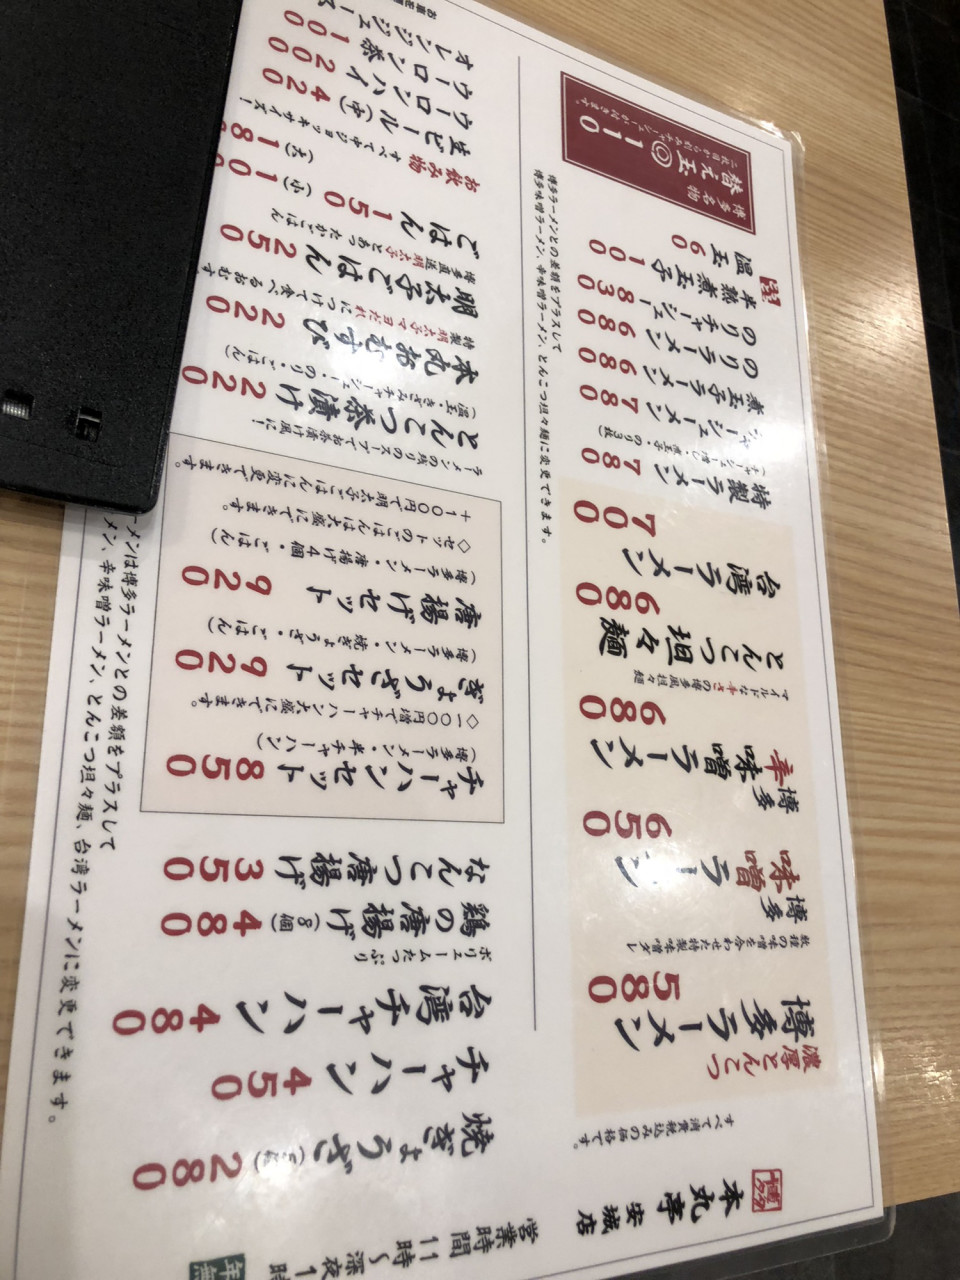 本丸亭 安城店
営業時間
11時〜深夜1時
年無
すべて消費税込みの価格です。
濃厚とんこつ
博多ラーメン
580
数種の味噌を合わせた特製味噌ダレ
博多味噌ラーメン
650
博多辛味噌ラーメン
680
マイルドな辛さの博多風担々麺
とんこつ担々麺
680
台湾ラーメン
700
特製ラーメン
780
(チャーシュー増し・煮玉子・のり3枚)
チャーシューメン
780
煮玉子ラーメン
680
のりラーメン
680
のりチャーシュー
830
半熟煮玉子
100
温玉
60
博多名物
替え玉
◎110
二枚目から刻みチャーシューが付きます。
博多ラーメンとの差額をプラスして
博多味噌ラーメン、辛味噌ラーメン、とんこつ担々麺に変更できます。
焼ぎょうざ
280
チャーハン
450
台湾チャーハン
480
ボリュームたっぷり
鶏の唐揚げ(8個)
480
なんこつ唐揚げ
350
チャーハンセット
850
(博多ラーメン・半チャーハン)
◇一〇〇円増でチャーハン大盛にできます。
ぎょうざセット
920
(博多ラーメン・焼ぎょうざ・ごはん)
唐揚げセット
920
(博多ラーメン・唐揚げ4個・ごはん)
◇セットのごはんは大盛にできます。
+一〇〇円で明太子ごはんに変更できます。
ラーメンの残りのスープでお茶漬け風に!
とんこつ茶漬け
220
(温玉・きざみチャーシュー・のり・ごはん)
本丸おむすび
220
特製明太子マヨだれにつけて食べるおむすび
明太子ごはん
250
博多直送 明太子とあったかごはん
ごはん
150
(小)100
(大)18
お飲み物
すべて中ジョッキサイズ!
生ビール(中)
420
ウーロンハイ
200
ウーロン茶
100
オレンジジュース
ーメンは博多ラーメンとの差額をプラスして
メン、辛味噌ラーメン、とんこつ担々麺、台湾ラーメンに変更できます。